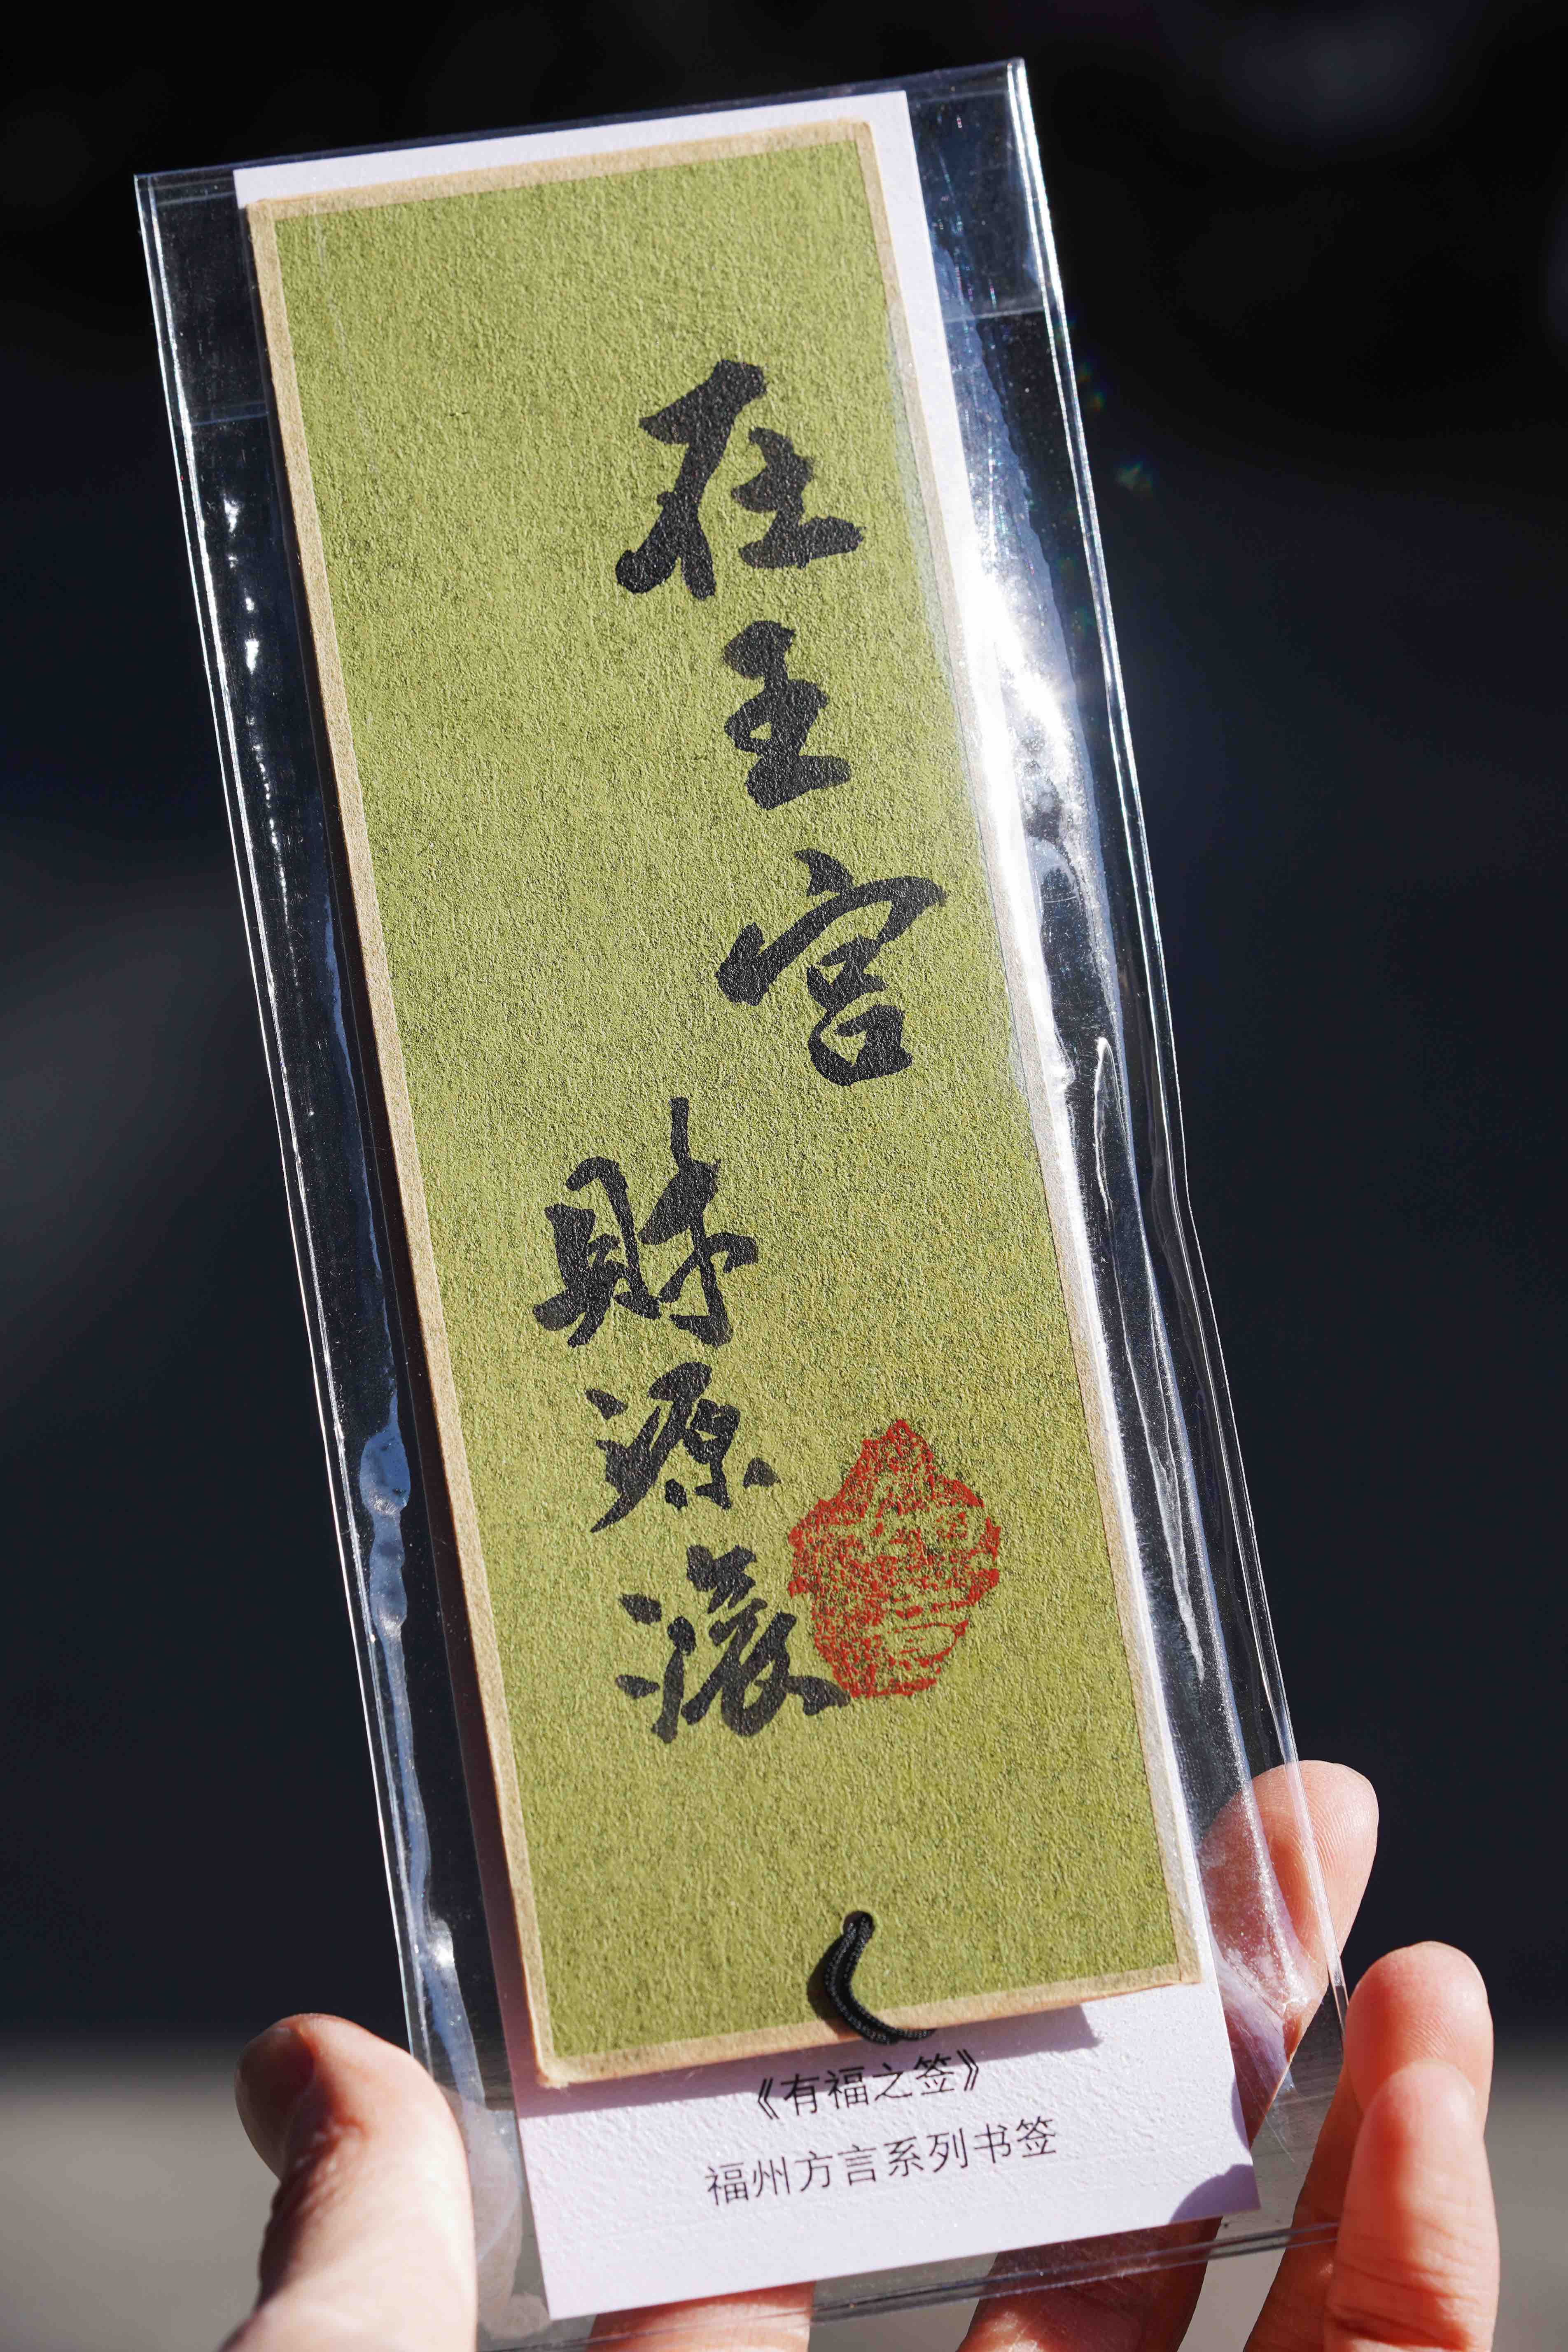 在王宫
財源滾
《有福之签》
福州方言系列书签